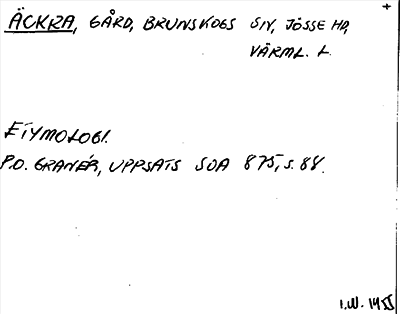 ÄCKRA, GÅRD, BRUNSKOGS SN, JÖSSE HD,
VÄRML. L.
ETYMOLOGI.
P.O. GRANÉR, UPPSATS SOA 875, S. 88.
1955